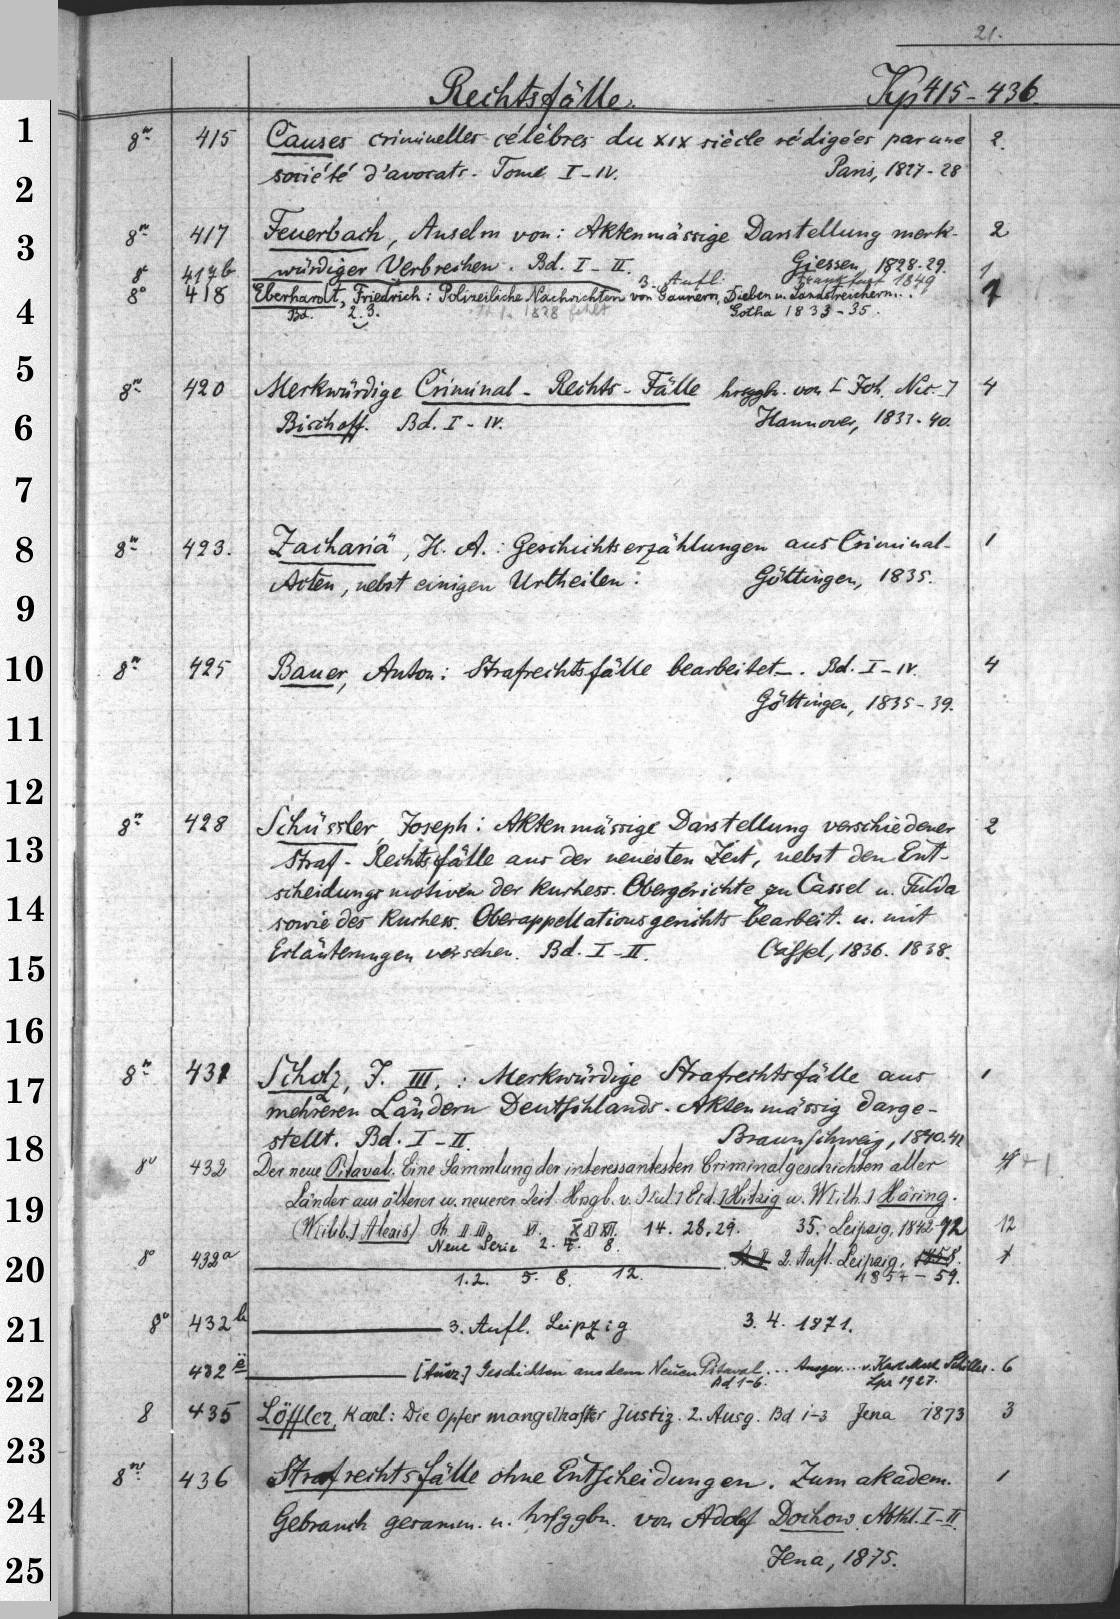 21.
Rechtsfälle. Kp 415-436
8° 415 Causes criminelles célèbres du XIX siècle rédigées par une 2.
société d'avocats. Tome I-IV. Paris, 1827-28
8° 417 Feuerbach, Anselm von: Aktenmässige Darstellung merk- 2
würdiger Verbrechen. Bd. I-II. Giessen, 1828-29.
8° 417b 3. Aufl. Frankfurt 1849 1
8° 418 Eberhardt, Friedrich: Polizeiliche Nachrichten von Gaunern, Dieben u. Landstreichern...
Bd. 2.3. 1828 fehlt Gotha 1833-35.
8° 420 Merkwürdige Criminal-Rechts-Fälle hrsggbn. von [Joh. Nic.] 4
Bischoff. Bd. I-IV. Hannover, 1833-40.
8° 423. Zachariä, H. A.: Geschichtserzählungen aus Criminal- 1
Acten, nebst einigen Urtheilen: Göttingen, 1835.
8° 425 Bauer, Anton: Strafrechtsfälle bearbeitet_. Bd. I-IV. 4
Göttingen, 1835-39.
8° 428 Schüssler, Joseph: Aktenmässige Darstellung verschiedener 2
Straf-Rechtsfälle aus der neuesten Zeit, nebst den Ent-
scheidungsmotiven der kurhess. Obergerichte zu Cassel u. Fulda
sowie des Kurhess. Oberappellationsgerichts bearbeit. u. mit
Erläuterungen versehen. Bd. I-II. Cassel, 1836. 1838.
8° 431 Scholz, J. III.: Merkwürdige Strafrechtsfälle aus 1
mehreren Ländern Deutschlands. Aktenmässig darge-
stellt. Bd. I-II. Braunschweig, 1840.41
8° 432 Der neue Pitaval. Eine Sammlung der interessantesten Criminalgeschichten aller
Länder aus älterer u. neuerer Zeit. Hrsgb. v. J[ul.] E[d.] Hitzig u. W[ilh.] Häring.
(W[ilib.] Alexis) Th. II III. VI. X XI XII. 14. 28. 29. 35. Leipzig, 1842-72 12
Neue Serie 2. 4. 8.
8° 432a 2. Aufl. Leipzig, 1858. 1
1.2. 5. 8. 12. 1857-59.
8° 432b 3. Aufl. Leipzig 3. 4. 1871.
432 [Ausz.] Geschichten aus dem Neuen Pitaval... Ausgew... v. Karl Mart. Schiller. 6
Bd 1-6. Lpz 1927.
8 435 Löffler, Karl: Die Opfer mangelhafter Justiz. 2. Ausg. Bd 1-3 Jena 1873 3
8° 436 Strafrechtsfälle ohne Entscheidungen. Zum akadem. 1
Gebrauch gesamm. u. hrsggbn. von Adolf Dochow. Abthl. I-II.
Jena, 1875.
1
2
3
4
5
6
7
8
9
10
11
12
13
14
15
16
17
18
19
20
21
22
23
24
25